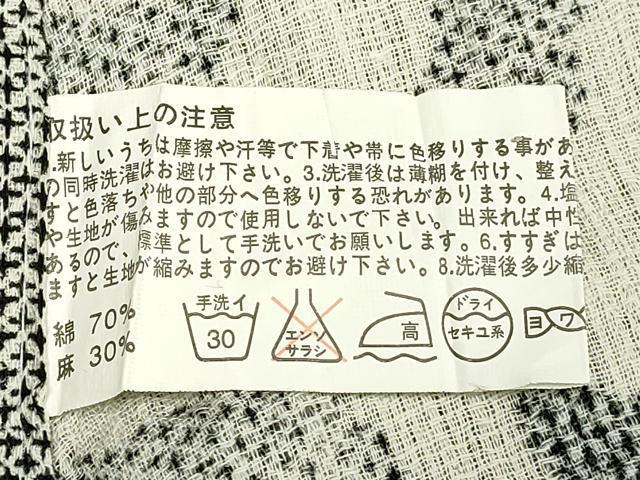 取扱い上の注意
1.新しいうちは摩擦や汗等で下着や帯に色移りする事があ
の同時洗濯はお避け下さい。3.洗濯後は薄糊を付け、整え
すと色落ちや他の部分へ色移りする恐れがあります。4.塩
や生地が傷みますので使用しないで下さい。出来れば中性
あるので、標準として手洗いでお願いします。6.すすぎは
ますと生地が縮みますのでお避け下さい。8.洗濯後多少縮
綿 70%
麻 30%
手洗イ
30
エンソ
サラシ
高
ドライ
セキユ系
ヨワ